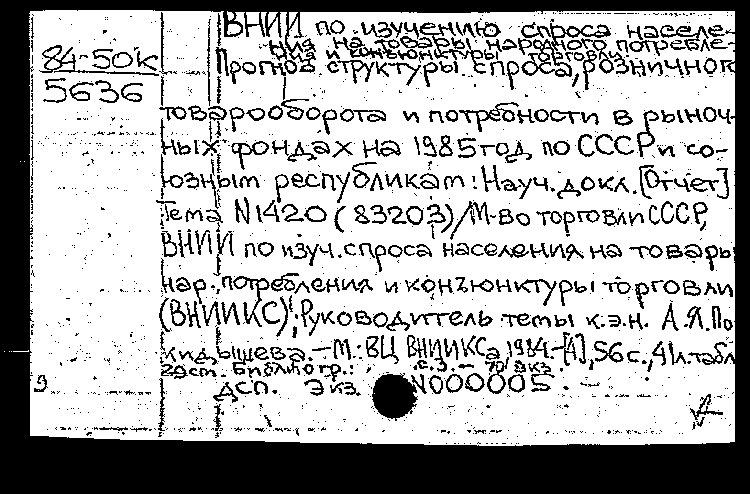 ВНИИ по изучению спроса населе-
ния на товары народного потребле-
ния и конъюнктуры торговли
84-50к
5636
Прогноз структуры спроса, розничного
товарооборота и потребности в рыноч-
ных фондах на 1985 год по СССР и со-
юзным республикам: Науч. докл. [Отчет]
Тема N1420 (83203)/М-во торговли СССР,
ВНИИ по изуч. спроса населения на товары
нар. потребления и конъюнктуры торговли
(ВНИИКС); Руководитель темы к.э.н. А.Я. По
кидышева. -М.: ВЦ ВНИИКСа, 1984.-[4], 56 с., 41 л. табл.
Библиогр.: с. 70 экз
9 ДСП. Экз. N000005.